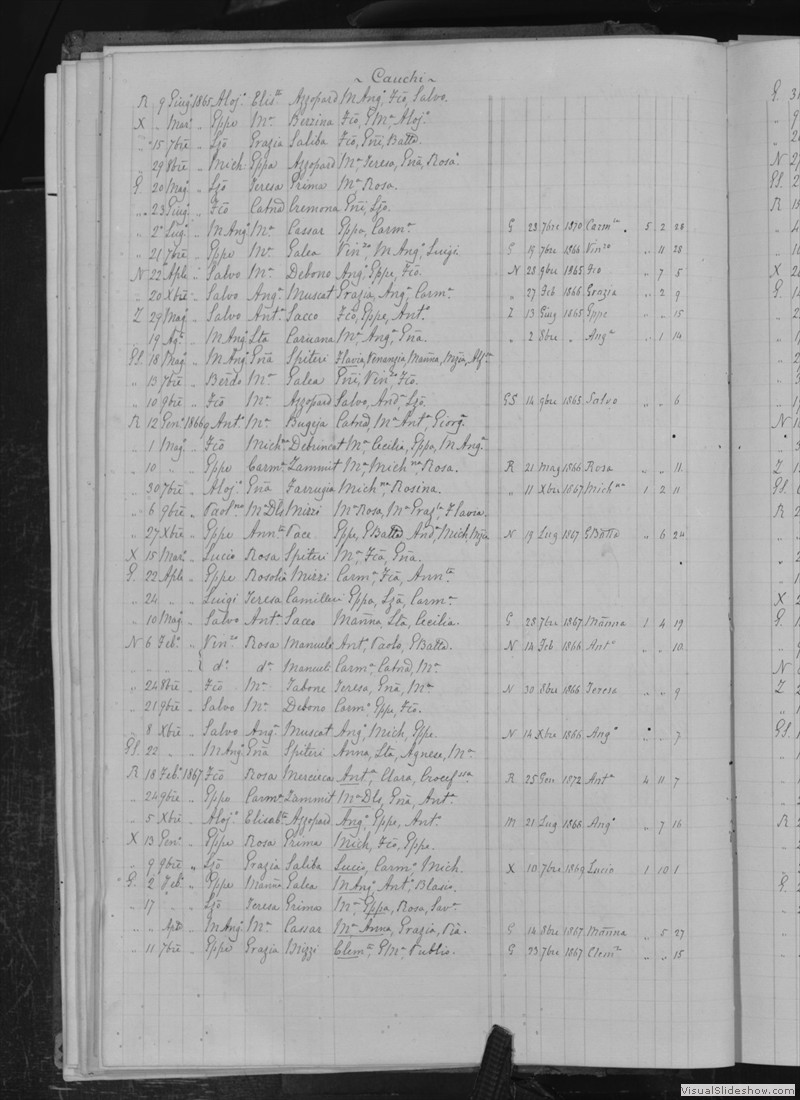 ~ Cauchi ~
R 9 Giug.° 1865 Aloj.° Elis.tta Azzopard M Ang.° Fcō, Salvo.
X „ Mar.° „ Gppe M.a Berzina Fcō, G M.a Aloj.°
„ 15 7bre „ Lzō Grazia Saliba Fcō, Gñi, Batta.
„ 29 8bre „ Mich. Gppa Azzopard M.a Teresa, Gña, Rosa.
G. 20 Mag.° „ Lzō Teresa Grima M.a Rosa.
„ 23 Giug.° „ Fcō Catnd Cremona Gñi, Lzō.
„ 2 Lug.° „ M Ang.° M.a Cassar Gppa, Carm.a G 23 7bre 1870 Carm.la 5 2 28
„ 21 7bre „ Gppe M.a Galea Vin.zo M Ang.° Luigi. G 19 7bre 1866 Vin.zo „ 11 28
N 22 Aple „ Salvo M.a Debono Ang.° Gppe, Fcō. N 28 9bre 1865 Fcō „ 7 5
„ 20 Xbre „ Salvo Ang.a Muscat Grazia, Ang.a Carm.a „ 27 Feb 1866 Grazia „ 2 9
Z 29 Mag. „ Salvo Ant.a Sacco Fcō, Gppe, Ant.° Z 13 Giug 1865 Gppe „ „ 15
„ 19 Ag.° „ M Ang.° Lta Caruana M.a Ang.a Gña. „ 2 8bre „ Ang.a „ 1 14
GS. 18 Mag.° „ M Ang.° Gña Spiteri Flavia, Venanzia, Mañna,
„ 13 7bre „ Berdo M.a Galea Gñi, Vin.zo Fcō.
„ 10 9bre „ Fcō M.a Azzopard Salvo, And.a Lzō. GS 14 9bre 1865 Salvo „ „ 6
R 12 Gen.° 1866 Ant.° M.a Bugeja Catnd, M.a Ant.a Giorg.a
„ 1 Mag.° „ Fcō Mich.na Debrincat M.a Cecilia, Gppa, M Ang.a
„ 10 „ „ Gppe Carm.a Zammit M.a Mich.na Rosa. R 21 Mag 1866 Rosa „ „ 11
„ 30 7bre „ Aloj.° Gña Farrugia Mich.na Rosina. „ 11 Xbre 1867 Mich.na 1 2 11
„ 6 9bre „ M.a Dls Mizzi M.a Rosa, M.a Flavia.
„ 27 Xbre „ Gppe Ann.tta Pace Gppe, GBatta And.a Mich, N 19 Lug 1867 GBatta „ 6 24
X 15 Mar.° „ Lucio Rosa Spiteri M.a Fcā, Gña.
G. 22 Aple „ Gppe Rosolia Mizzi Carm.a Fcā, Ann.tta
„ 24 „ „ Luigi Teresa Camilleri Gppa, Lzā, Carm.a
„ 10 Mag „ Salvo Ant.a Sacco Mañna, Lta, Cecilia. G 28 7bre 1867 Mañna 1 4 19
N 6 Feb.° „ Vin.zo Rosa Manuele Ant.° Paolo, GBatta. N 14 Feb 1866 Ant.° „ „ 10
„ „ „ „ { d.° d.a Manueli Carm.a Catnd, M.a
„ 24 8bre „ Fcō M.a Tabone Teresa, Gña, M.a N 30 8bre 1866 Teresa „ „ 9
„ 21 9bre „ Salvo M.a Debono Carm.° Gppe, Fcō.
„ 8 Xbre „ Salvo Ang.a Muscat Ang.° Mich, Gppe. N 14 Xbre 1866 Ang.° „ „ 7
GS. 22 „ „ M Ang.° Gña Spiteri Anna, Lta, Agnese, M.a
R 18 Feb.° 1867 Fcō Rosa Mercieca Ant.a Clara, Crocif.ssa R 25 Gen 1872 Ant.a 4 11 7
„ 24 9bre „ Gppe Carm.a Zammit M.a Dls, Gña, Ant.a
„ 5 Xbre „ Aloj.° Elisab.tta Azzopard Ang.° Gppe, Ant.° M 21 Lug 1868 Ang.° „ 7 16
X 13 Gen.° „ Gppe Rosa Grima Mich, Fcō, Gppe.
„ 9 9bre „ Lzō Grazia Saliba Lucio, Carm.° Mich. X 10 7bre 1869 Lucio 1 10 1
G. 2 Feb.° „ Gppe Mañna Galea M Ang.° Ant.° Blasio.
„ 17 „ „ Lzō Teresa Grima M.a Gppa, Rosa, Sav.a
„ „ Aple „ M Ang.° M.a Cassar M.a Anna, Grazia, Pia. G 14 8bre 1867 Mañna „ 5 27
„ 11 7bre „ Gppe Grazia Mizzi Clem.te G M.a Publio. G 23 7bre 1867 Clem.te „ „ 15
VisualSlideshow.com